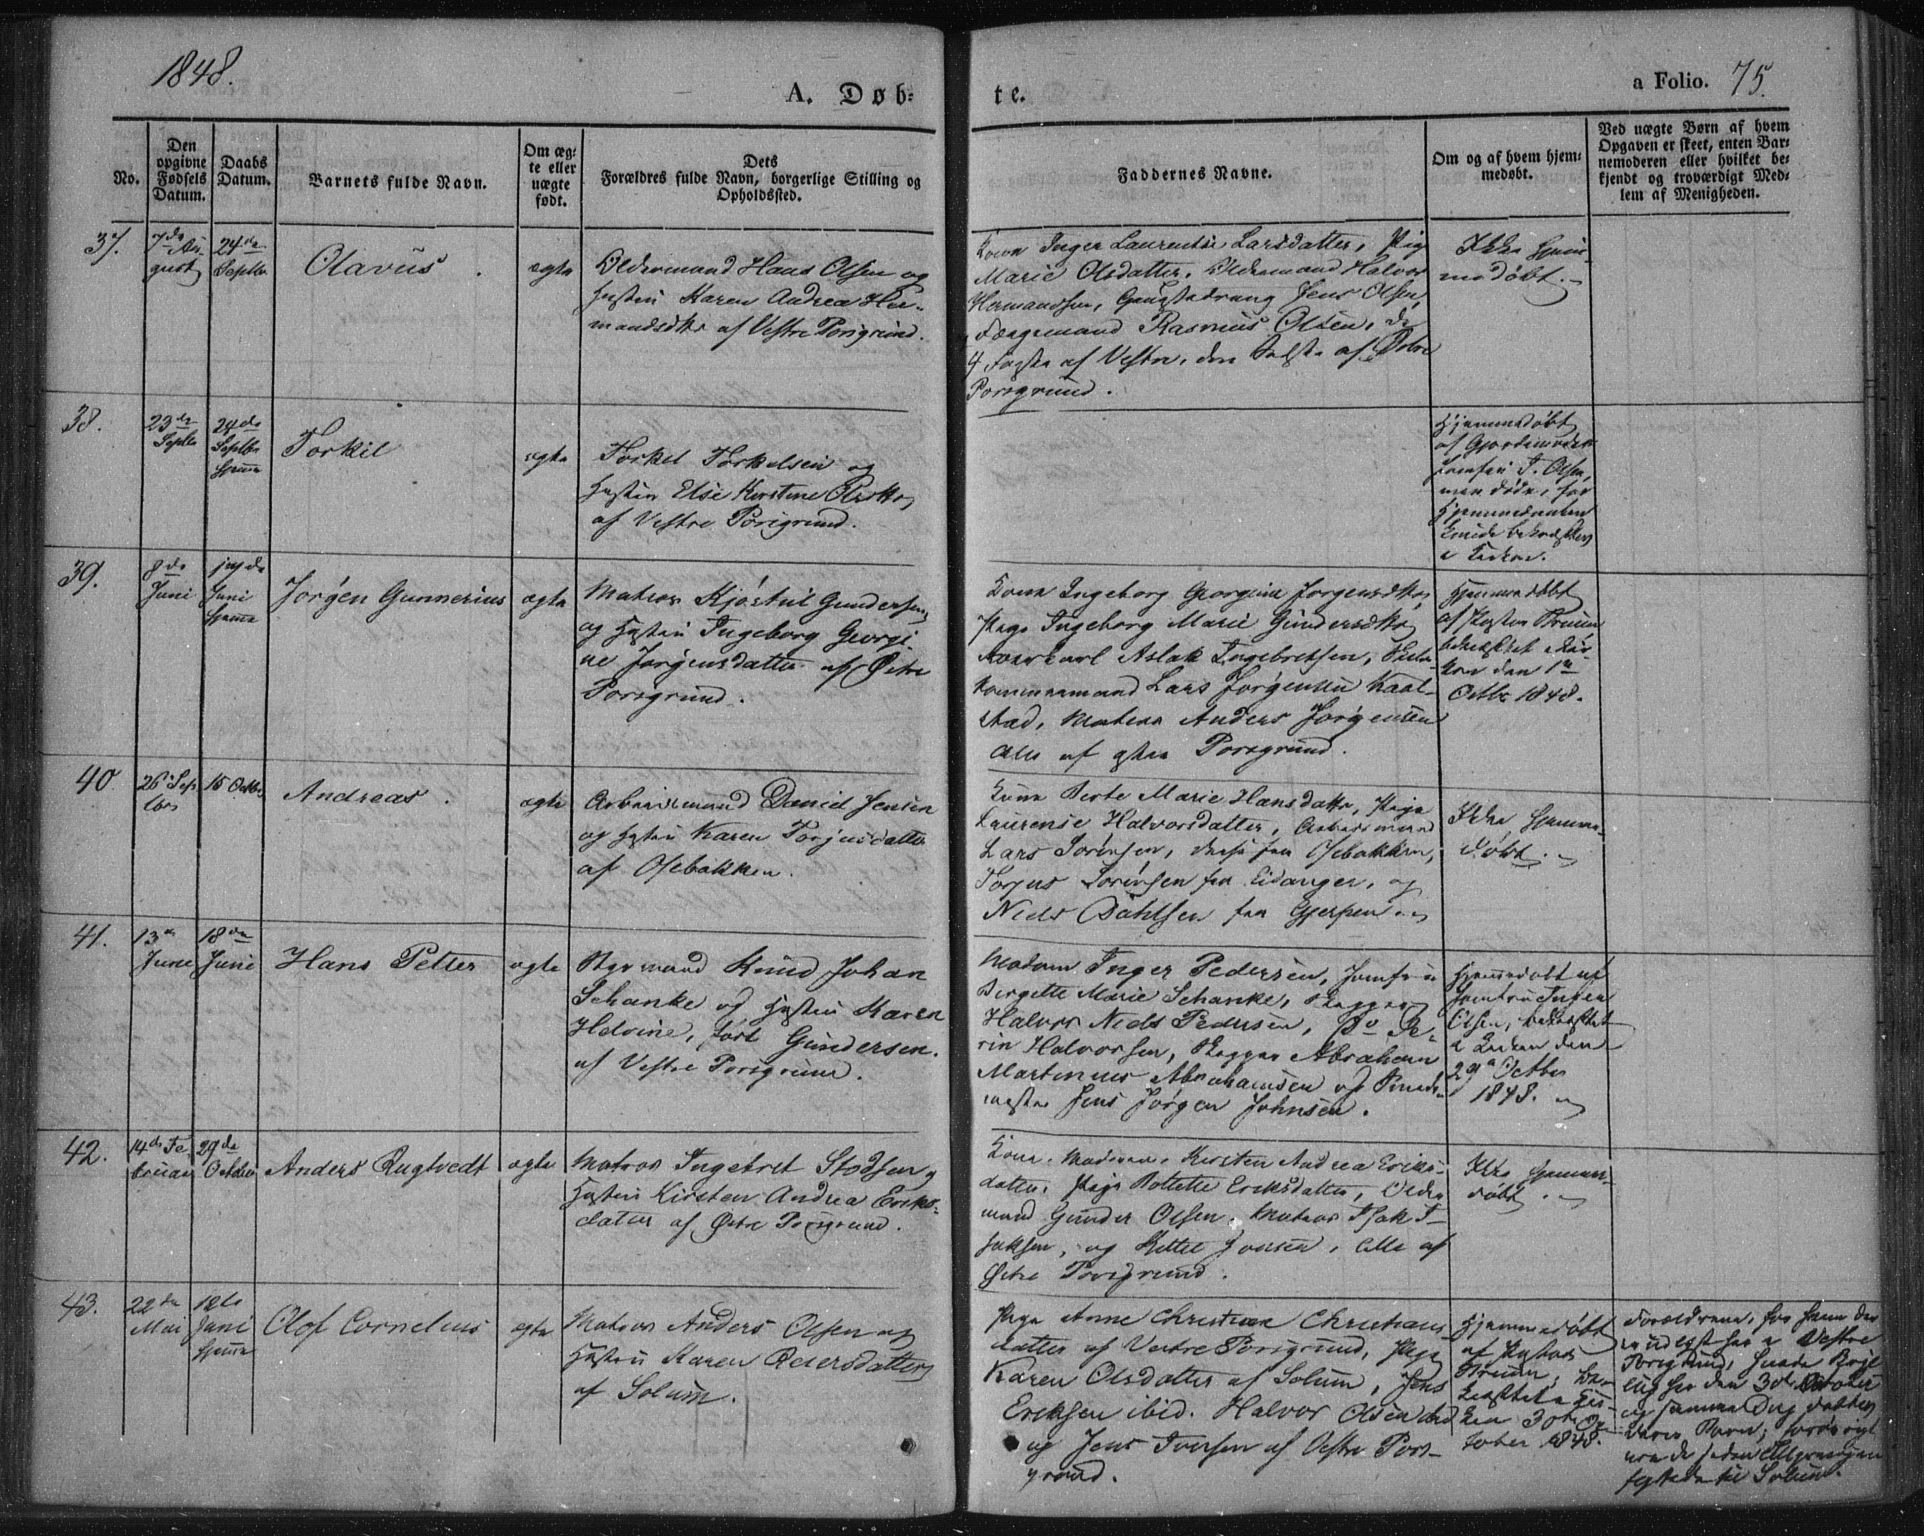 1848.
A. Døb-
te.
a Folio. 75.
No.
Den opgivne Fødsels Datum.
Daabs Datum.
Barnets fulde Navn.
Om ægte eller uægte født.
Dets Forældres fulde Navn, borgerlige Stilling og Opholdssted.
Faddernes Navne.
Om og af hvem hjemmedøbt.
Ved uægte Børn af hvem Opgaven er skeet, enten Barnemoderen eller hvilket bekjendt og troværdigt Medlem af Menigheden.
37.
7de August
24de Septbr
Olavus
ægte
Oldermand Hans Olsen og
Hustru Karen Andrea Her-
mandsdtr af Vestre Porsgrund.
Kone Inger Laurentse Larsdatter, Pige
Marie Olsdatter, Oldermand Halvor
Hermandsen, Jens Olsen,
Færgemand Rasmus Olsen, de
4 første af Vestre, den sidste af Østre
Porsgrund.
Ikke hjem-
medøbt.
38.
23de Septbr
24de Septbr hjemme
Torkil
ægte
Torkel Torkelsen og
Hustru Else Kirstine
af Vestre Porsgrund.
Hjemmedøbt
af
Jomfru T. Olsen,
men døde, før
Hjemmedaaben
kunde bekræftes
i Kirken.
39.
8de Juni
Juni hjemme
Jørgen Gunnerius
ægte
Matros Kjøstul Gundersen
og Hustru Ingeborg Georgi-
ne Jørgensdatter af Østre
Porsgrund.
Kone Ingeborg Georgine Jørgensdtr,
Pige Ingeborg Marie Gundersdtr
Aslak Ingebretsen,
Lars Jørgensen Kaal-
stad, Matros Anders Jørgensen
alle af østre Porsgrund.
Hjemmedøbt
af Pastor
bekræftet i Kir-
ken den 1ste
Octbr 1848.
40
26 Septbr
15 Octbr
Andreas
ægte
Arbeidsmand Daniel Jensen
og Hustru Karen Torjusdatter
af Osebakken.
Kone Berte Marie Hansdatter, Pige
Laurense Halvorsdatter, Arbeidsmand
Lars Sørensen, disse fra Osebakken,
Torjus Sørensen fra Eidanger, og
Niels Dahlsen fra Gjerpen.
Ikke hjemme-
døbt.
41.
13de June
18de Juni
Hans Petter
ægte
Styrmand Knud Johan
Schanke og Hustru Karen
Halvine, født Gundersen.
af Vestre Porsgrund.
Madam Inger Pedersen, Jomfru
Birgette Marie Schanke, Skipper
Halvor Niels Pedersen, Do
Halvorsen, Skipper Abraham
Martinus Abrahamsen og
Jens Jørgen Johnsen.
Hjemmedøbt af
Jomfru Inger
Olsen, bekræftet
i Kirken den
29de Octbr
1848.
42.
14de Februar
29de October
Anders Rugtvedt
ægte
Matros Ingebret
Hustru Kirsten Andrea Eriks-
datter af Østre Porsgrund.
Kone, Moderen, Kirsten Andrea Eriks-
datter, Pige Eriksdatter, Older
mand Gunder Olsen, Matros Isak I-
saksen, og Kittel Iversen, alle af
Østre Porsgrund.
Ikke hjemme-
døbt.
43.
22de Mai
12te Juni hjemme
Olof Cornelius
ægte
Matros Anders Olsen og
Hustru Karen Reiersdatter
af Solum.
Pige Anne Christine Christians-
datter af Vestre Porsgrund, Pige
Karen Olsdatter af Solum, Jens
Eriksen ibid. Halvor Olsen ibid
og Jens Iversen af Vestre Pors-
grund.
Hjemmedøbt
af Pastor
be-
kræftet i Kir-
ken 30te Oc-
tober 1848.
Forældrene,
i Vestre
Porsgrund,
den 30te October
og samme Dag døbtes
deres Barn;
til Solum.